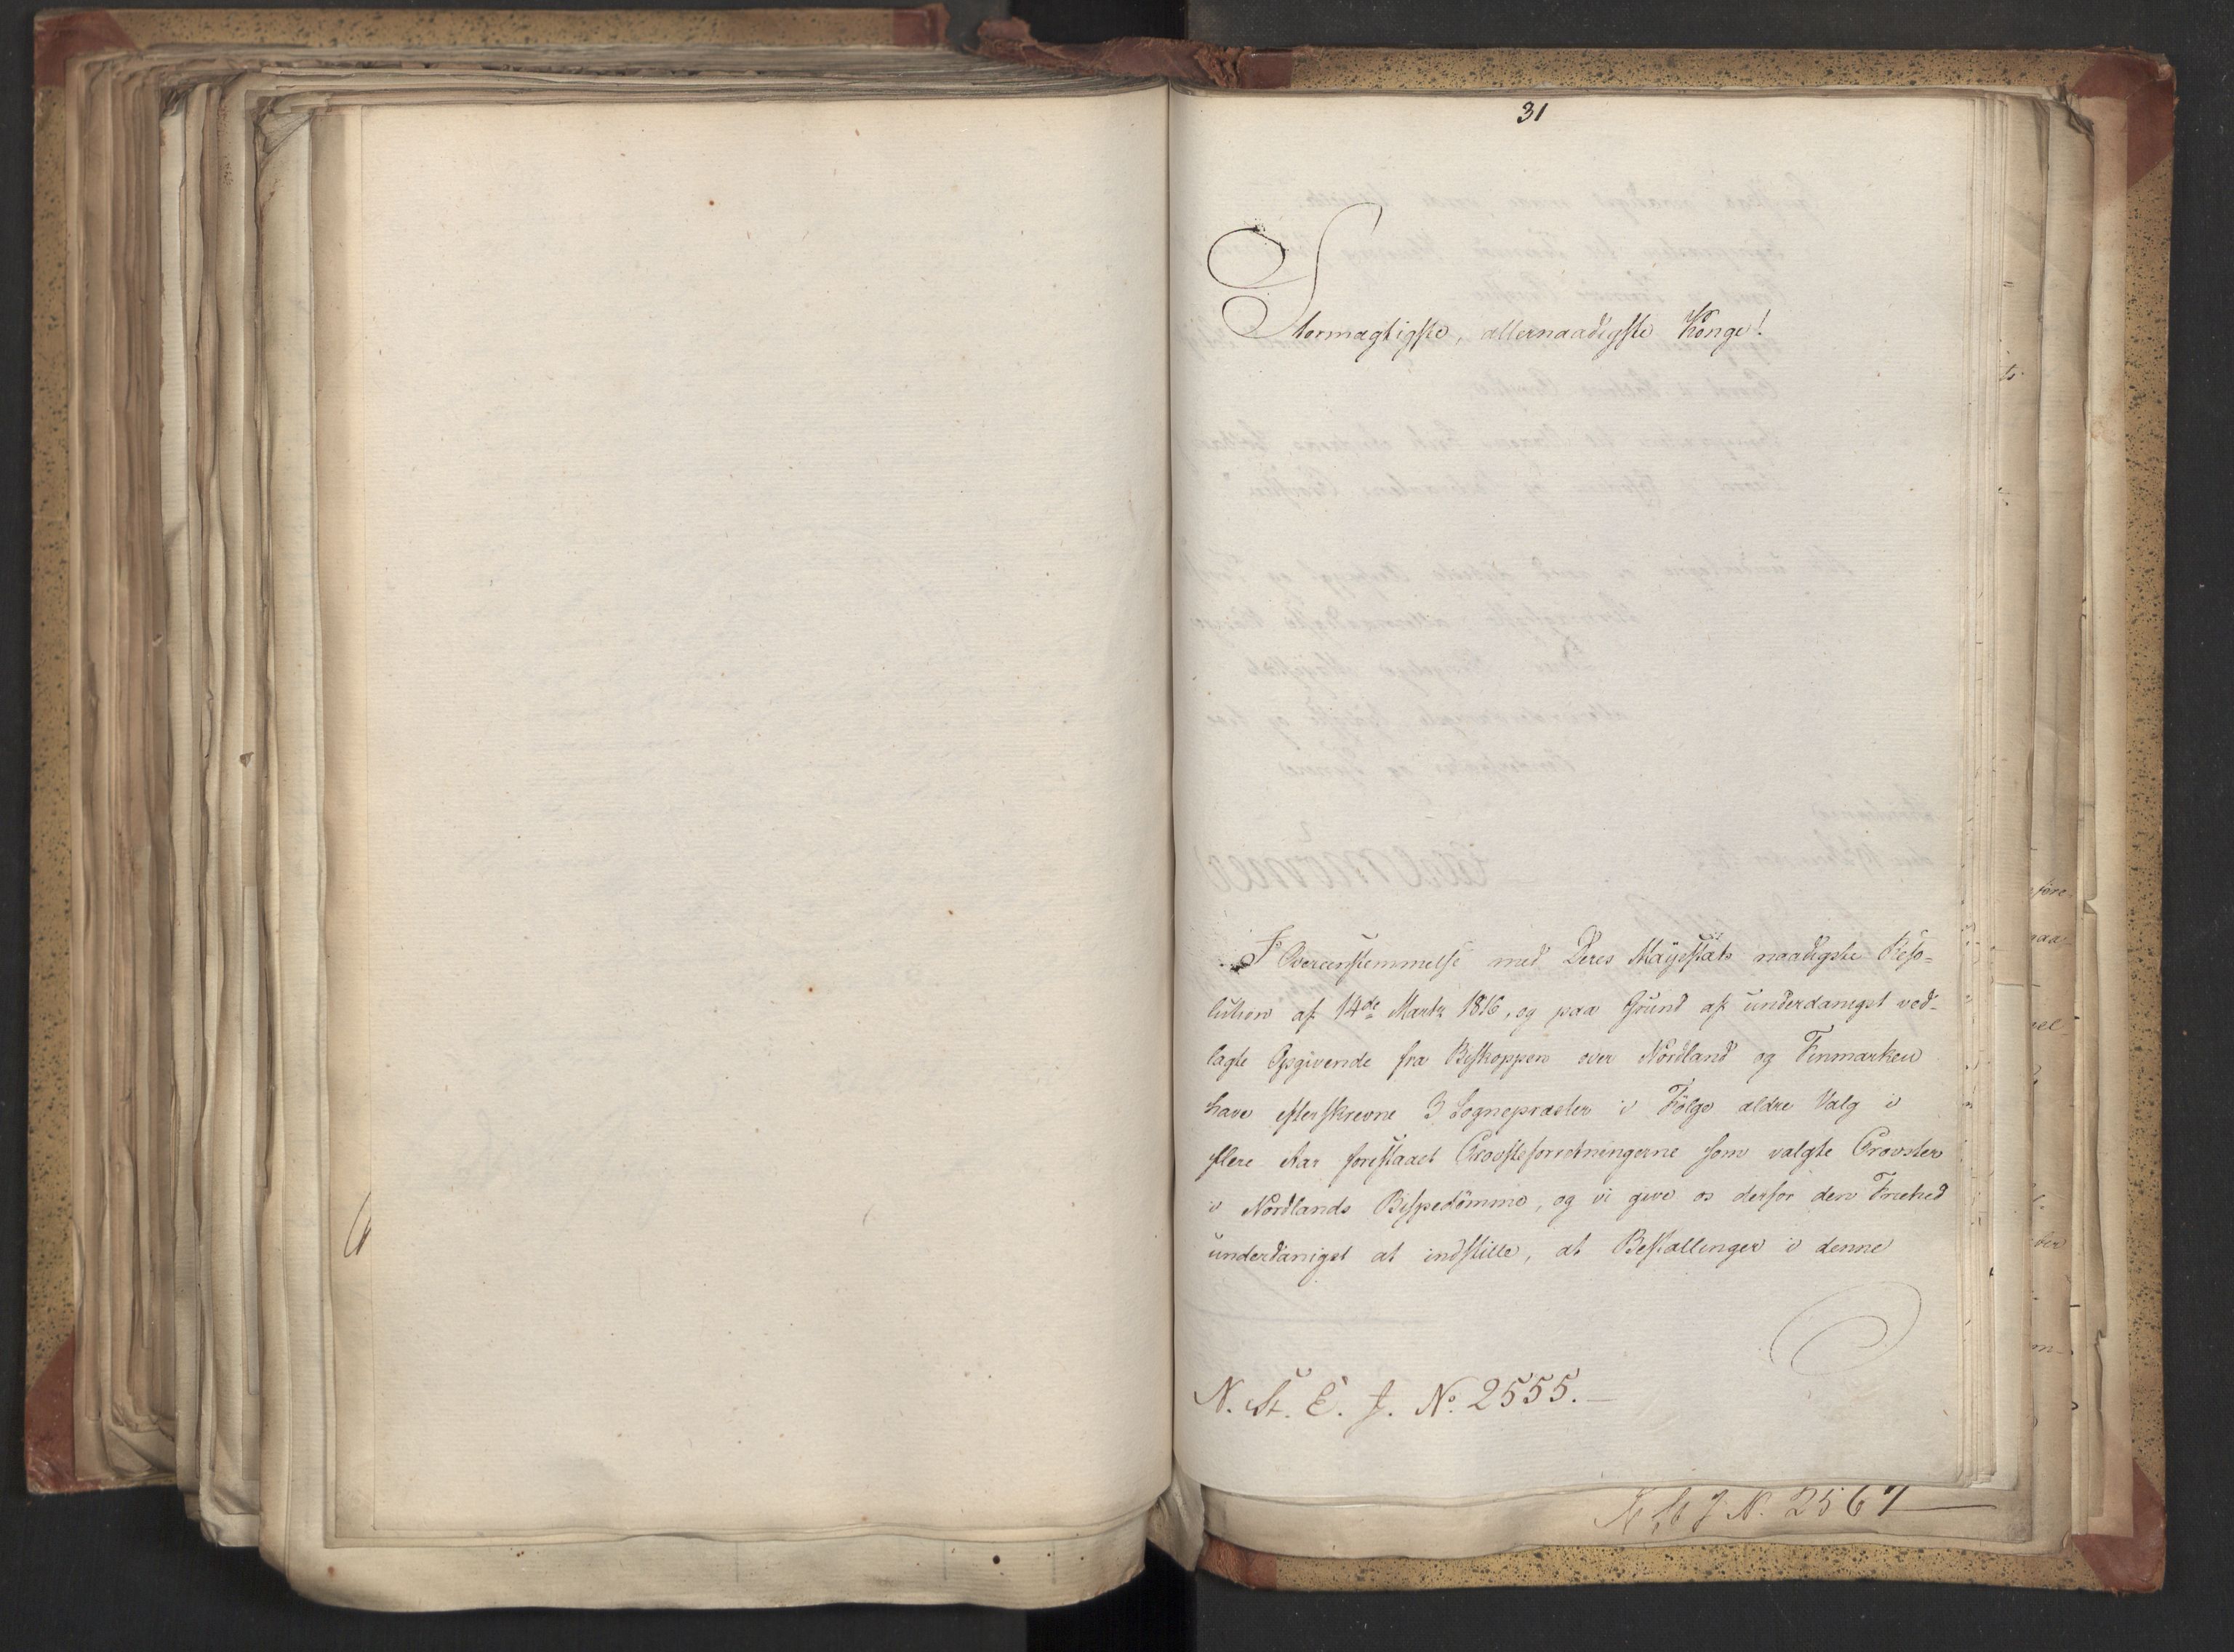 31
Stormægtigste, allernaadigste Konge!
I Overeenstemmelse med Deres Majestæts naadigste Reso-
lution af 14de Marts 1816, og paa Grund af underdanigst ved-
lagte Opgivende fra Biskoppen over Nordland og Finmarken
have efterskrevne 3 Sognepræster i Fölge ældre Valg i
flere Aar forestaaet Provsteforretningerne som valgte Provster
i Nordlands Bispedömme, og vi give os derfor den Friehed
underdanigst at indstille, at Bestallinger i denne
N. St. E. J. No. 2555.
J N. 2567